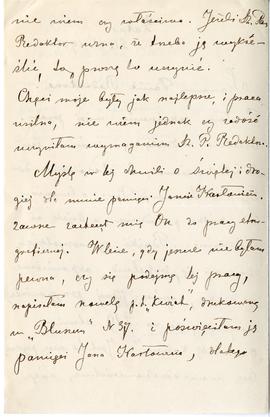 nie wiem czy właściwa. Jeżeli Sz. Pan
Redaktor uzna, że trzeba ją wykre-
ślić, to proszę to uczynić.
Chęci moje były jak najlepsze, i praca
usilna, nie wiem jednak czy zadość
uczyniłam wymaganiom Sz. P. Redaktora.
Myślę w tej chwili o świętej i dro-
giej dla mnie pamięci Janie Karłowiczu.
zawsze zachęcał mię On do pracy etno-
graficznej. W lecie, gdy jeszcze nie byłam
pewna, czy się podejmę tej pracy,
napisałam nowelę p.t. "Kwiat", drukowaną
w "Bluszczu" N 37. i poświęciłam ją
pamięci Jana Karłowicza, dlatego